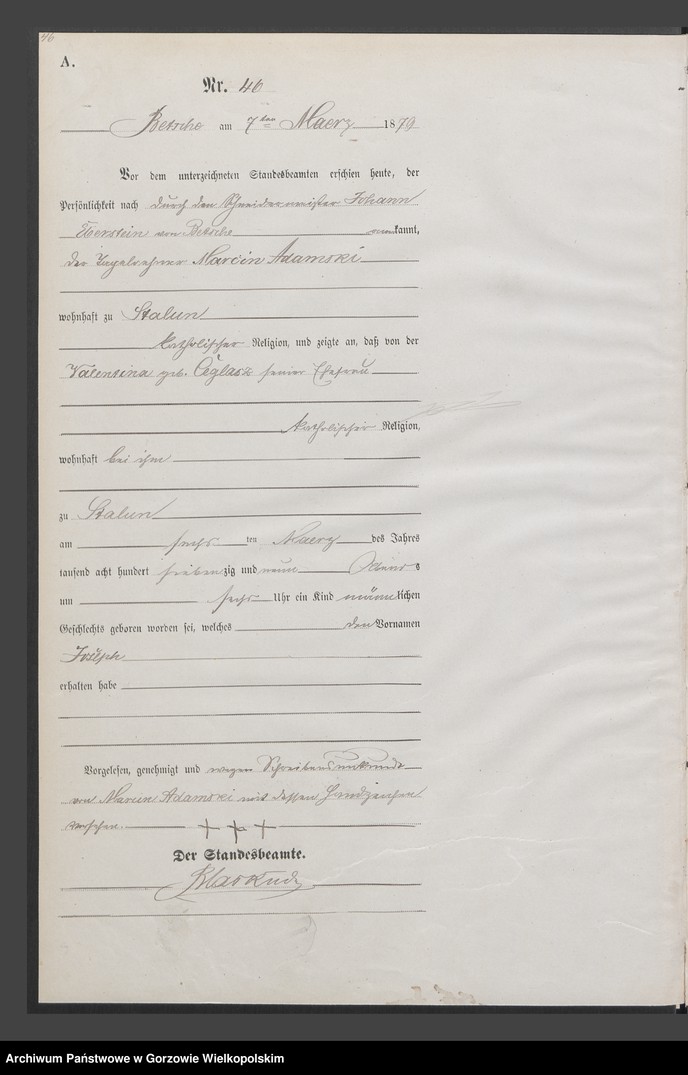 46
A.
Nr. 46
Betsche am 7ten Maerz 1879
Vor dem unterzeichneten Standesbeamten erschien heute, der
Persönlichkeit nach durch den Schneidermeister Johann
Eberstein von Betsche anerkannt,
der Tagelöhner Marcin Adamski
wohnhaft zu Stalun
katholischer Religion, und zeigte an, daß von der
Valentina geb. Ceglarz seiner Ehefrau
katholischer Religion,
wohnhaft bei ihm
zu Stalun
am sechsten Maerz des Jahres
tausend acht hundert siebenzig und neun Abends
um sechs Uhr ein Kind männlichen
Geschlechts geboren worden sei, welches den Vornamen
Joseph
erhalten habe
Vorgelesen, genehmigt und wegen Schreibensunkunde
von Marcin Adamski mit dessen Handzeichen
versehen. + + +
Der Standesbeamte.
Archiwum Państwowe w Gorzowie Wielkopolskim